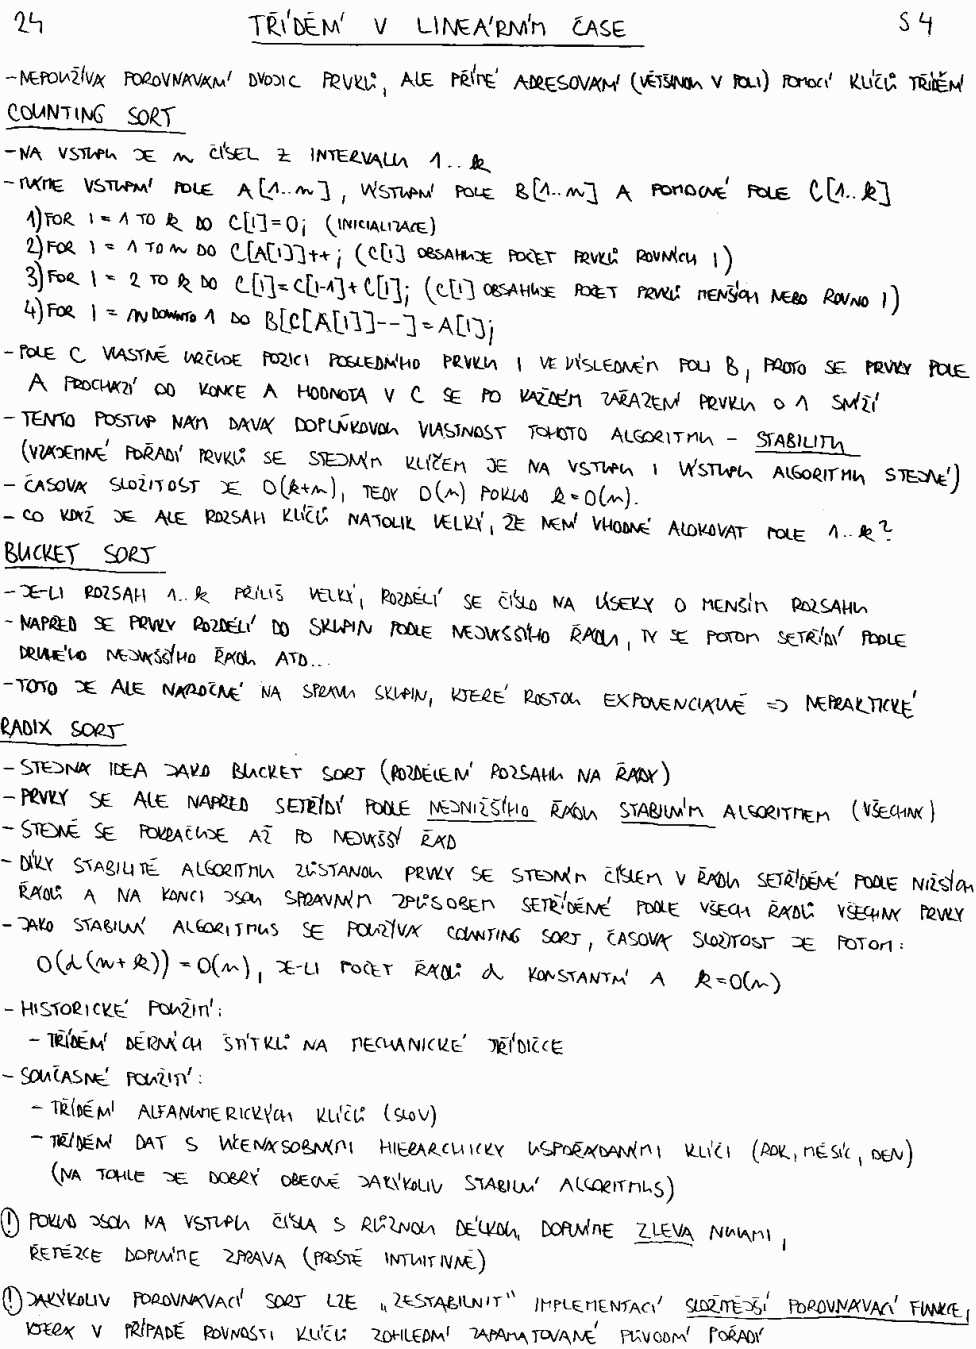 24 TŘÍDĚNÍ V LINEÁRNÍM ČASE S4
- NEPOUŽÍVÁ POROVNÁVÁNÍ DVOJIC PRVKŮ, ALE PŘÍMÉ ADRESOVÁNÍ (VĚTŠINOU V POLI) POMOCÍ KLÍČŮ TŘÍDĚNÍ
COUNTING SORT
- NA VSTUPU JE n ČÍSEL Z INTERVALU 1..k
- MÁME VSTUPNÍ POLE A[1..n], VÝSTUPNÍ POLE B[1..n] A POMOCNÉ POLE C[1..k]
1) FOR I = 1 TO k DO C[I]=0; (INICIALIZACE)
2) FOR I = 1 TO n DO C[A[I]]++; (C[I] OBSAHUJE POČET PRVKŮ ROVNÝCH I)
3) FOR I = 2 TO k DO C[I]=C[I-1]+C[I]; (C[I] OBSAHUJE POČET PRVKŮ MENŠÍCH NEBO ROVNO I)
4) FOR I = n DOWNTO 1 DO B[C[A[I]]--]=A[I];
- POLE C VLASTNĚ URČUJE POZICI POSLEDNÍHO PRVKU I VE VÝSLEDNÉM POLI B, PROTO SE PRVKY POLE
A PROCHÁZÍ OD KONCE A HODNOTA V C SE PO KAŽDÉM ZAŘAZENÍ PRVKU O 1 SNÍŽÍ
- TENTO POSTUP NÁM DÁVÁ DOPLŇKOVOU VLASTNOST TOHOTO ALGORITMU - STABILITU
(VZÁJEMNÉ POŘADÍ PRVKŮ SE STEJNÝM KLÍČEM JE NA VSTUPU I VÝSTUPU ALGORITMU STEJNÉ)
- ČASOVÁ SLOŽITOST JE O(k+n), TEDY O(n) POKUD k=O(n).
- CO KDYŽ JE ALE ROZSAH KLÍČŮ NATOLIK VELKÝ, ŽE NENÍ VHODNÉ ALOKOVAT POLE 1..k?
BUCKET SORT
- JE-LI ROZSAH 1..k PŘÍLIŠ VELKÝ, ROZDĚLÍ SE ČÍSLO NA ÚSEKY O MENŠÍM ROZSAHU
- NAPŘED SE PRVKY ROZDĚLÍ DO SKUPIN PODLE NEJVYŠŠÍHO ŘÁDU, TY SE POTOM SETŘÍDÍ PODLE
DRUHÉHO NEJVYŠŠÍHO ŘÁDU ATD...
- TOTO JE ALE NÁROČNÉ NA SPRÁVU SKUPIN, KTERÉ ROSTOU EXPONENCIÁLNĚ => NEPRAKTICKÉ
RADIX SORT
- STEJNÁ IDEA JAKO BUCKET SORT (ROZDĚLENÍ ROZSAHU NA ŘÁDY)
- PRVKY SE ALE NAPŘED SETŘÍDÍ PODLE NEJNIŽŠÍHO ŘÁDU STABILNÍM ALGORITMEM (VŠECHNY)
- STEJNĚ SE POKRAČUJE AŽ PO NEJVYŠŠÍ ŘÁD
- DÍKY STABILITĚ ALGORITMU ZŮSTANOU PRVKY SE STEJNÝM ČÍSLEM V ŘÁDU SETŘÍDĚNÉ PODLE NIŽŠÍCH
ŘÁDŮ A NA KONCI JSOU SPRÁVNÝM ZPŮSOBEM SETŘÍDĚNÉ PODLE VŠECH ŘÁDŮ VŠECHNY PRVKY
- JAKO STABILNÍ ALGORITMUS SE POUŽÍVÁ COUNTING SORT, ČASOVÁ SLOŽITOST JE POTOM:
O(d(n+k)) = O(n), JE-LI POČET ŘÁDŮ d KONSTANTNÍ A k=O(n)
- HISTORICKÉ POUŽITÍ:
- TŘÍDĚNÍ DĚRNÝCH ŠTÍTKŮ NA MECHANICKÉ TŘÍDIČCE
- SOUČASNÉ POUŽITÍ:
- TŘÍDĚNÍ ALFANUMERICKÝCH KLÍČŮ (SLOV)
- TŘÍDĚNÍ DAT S VÍCENÁSOBNÝMI HIERARCHICKY USPOŘÁDANÝMI KLÍČI (ROK, MĚSÍC, DEN)
(NA TOHLE JE DOBRÝ OBECNĚ JAKÝKOLIV STABILNÍ ALGORITMUS)
! POKUD JSOU NA VSTUPU ČÍSLA S RŮZNOU DÉLKOU, DOPLNÍME ZLEVA NULAMI,
ŘETĚZCE DOPLNÍME ZPRAVA (PROSTĚ INTUITIVNĚ)
! JAKÝKOLIV POROVNÁVACÍ SORT LZE „ZESTABILNIT" IMPLEMENTACÍ SLOŽITĚJŠÍ POROVNÁVACÍ FUNKCE,
KTERÁ V PŘÍPADĚ ROVNOSTI KLÍČŮ ZOHLEDNÍ ZAPAMATOVANÉ PŮVODNÍ POŘADÍ